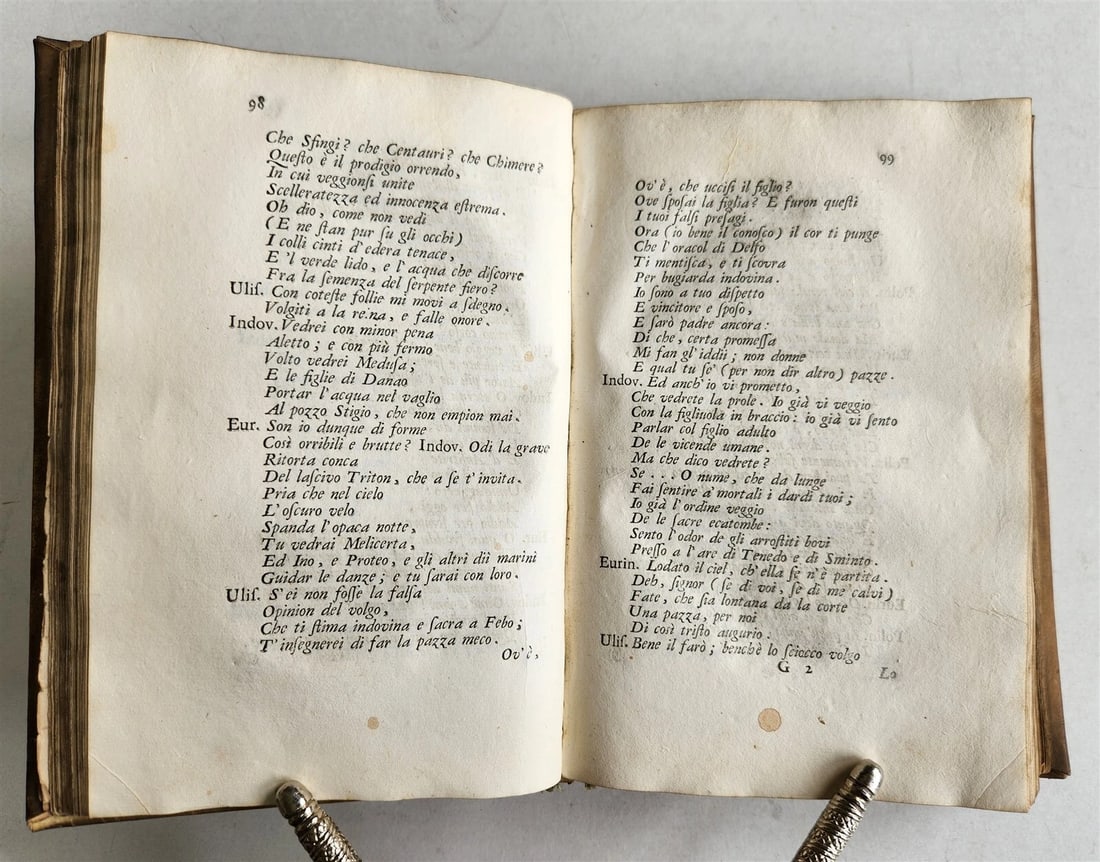 98
Che Sfingi? che Centauri? che Chimere?
Queſto è il prodigio orrendo,
In cui veggionſi unite
Scelleratezza ed innocenza eſtrema.
Oh dio, come non vedi
(E ne ſtan pur ſu gli occhi)
I colli cinti d'edera tenace,
E 'l verde lido, e l'acqua che diſcorre
Fra la ſemenza del ſerpente fiero?
Uliſ. Con coteſte follie mi movi a ſdegno.
Volgiti a la reina, e falle onore.
Indov. Vedrei con minor pena
Aletto; e con più fermo
Volto vedrei Meduſa;
E le figlie di Danao
Portar l'acqua nel vaglio
Al pozzo Stigio, che non empion mai.
Eur. Son io dunque di forme
Così orribili e brutte? Indov. Odi la grave
Ritorta conca
Del laſcivo Triton, che a ſe t'invita.
Pria che nel cielo
L'oſcuro velo
Spanda l'opaca notte,
Tu vedrai Melicerta,
Ed Ino, e Proteo, e gli altri dii marini
Guidar le danze; e tu ſarai con loro.
Uliſ. S'ei non foſſe la falſa
Opinion del volgo,
Che ti ſtima indovina e ſacra a Febo;
T'inſegnerei di far la pazza meco.
Ov'è,
99
Ov'è, che ucciſi il figlio?
Ove ſpoſai la figlia? E furon queſti
I tuoi falſi preſagi.
Ora (io bene il conoſco) il cor ti punge
Che l'oracol di Delfo
Ti mentiſca, e ti ſcovra
Per bugiarda indovina.
Io ſono a tuo diſpetto
E vincitore e ſpoſo,
E ſarò padre ancora:
Di che, certa promeſſa
Mi fan gl'iddii; non donne
E qual tu ſe' (per non dir altro) pazze.
Indov. Ed anch'io vi prometto,
Che vedrete la prole. Io già vi veggio
Con la figliuola in braccio: io già vi ſento
Parlar col figlio adulto
De le vicende umane.
Ma che dico vedrete?
Se . . . O nume, che da lunge
Fai ſentire a' mortali i dardi tuoi;
Io già l'ordine veggio
De le ſacre ecatombe:
Sento l'odor de gli arroſtiti bovi
Preſſo a l'are di Tenedo e di Sminto.
Eurin. Lodato il ciel, ch'ella ſe n'è partita.
Deh, ſignor (ſe di voi, ſe di me calvi)
Fate, che ſia lontana da la corte
Una pazza, per noi
Di così triſto augurio.
Uliſ. Bene il farò; benchè lo ſciocco volgo
G 2
Lo